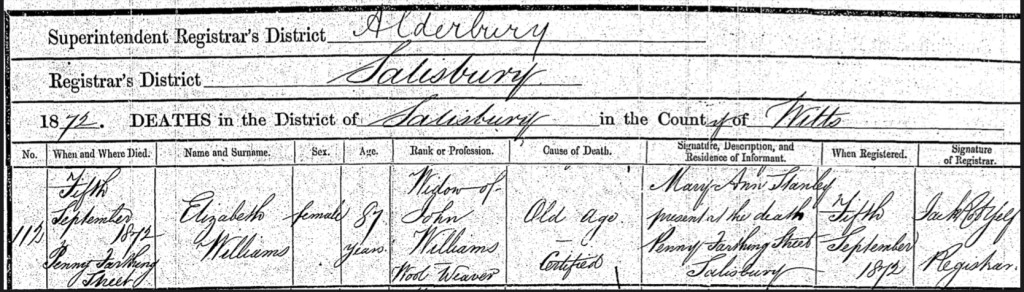 Superintendent Registrar's District Alderbury
Registrar's District Salisbury
1872. DEATHS in the District of Salisbury in the County of Wilts
No. When and Where Died. Name and Surname. Sex. Age. Rank or Profession. Cause of Death. Signature, Description, and Residence of Informant. When Registered. Signature of Registrar.
112
Fifth
September
1872
Penny Farthing
Street
Elizabeth
Williams
female
87
years
Widow of
John
Williams
Wool Weaver
Old Age
Certified
Mary Ann Stanley
present at the death
Penny Farthing Street
Salisbury
Fifth
September
1872
Registrar.